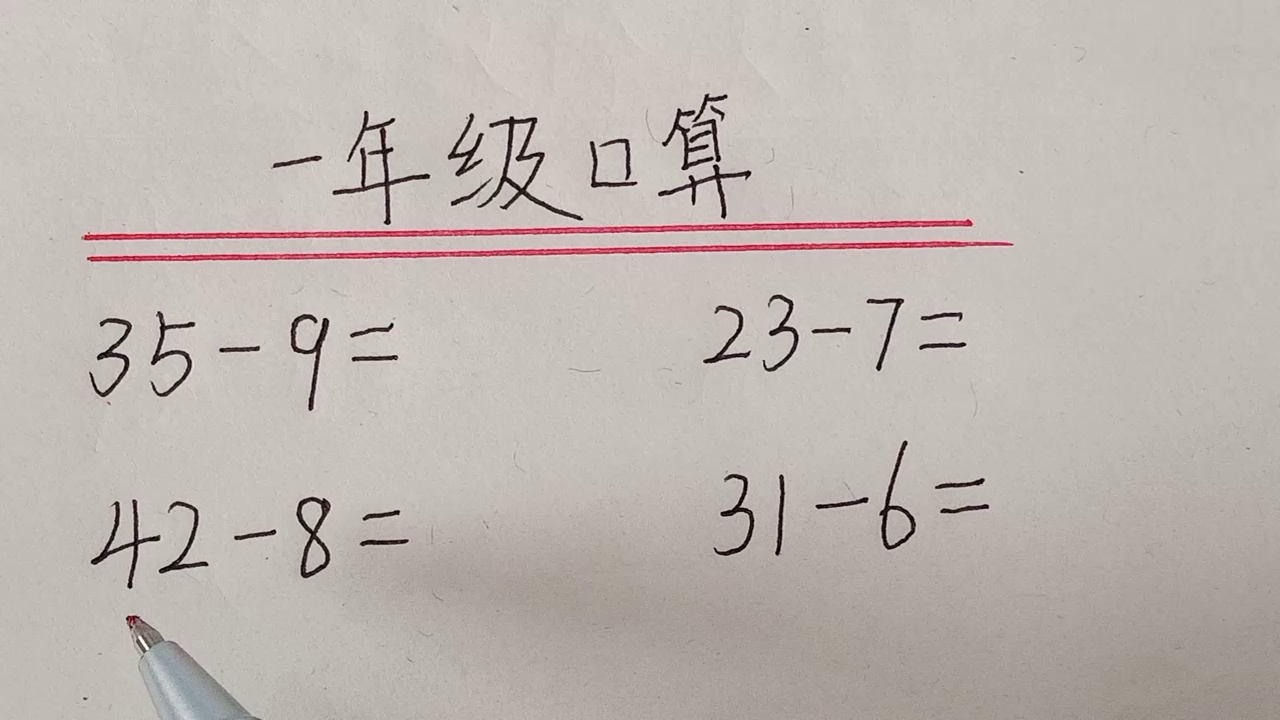 一年级口算
35-9= 23-7=
42-8= 31-6=